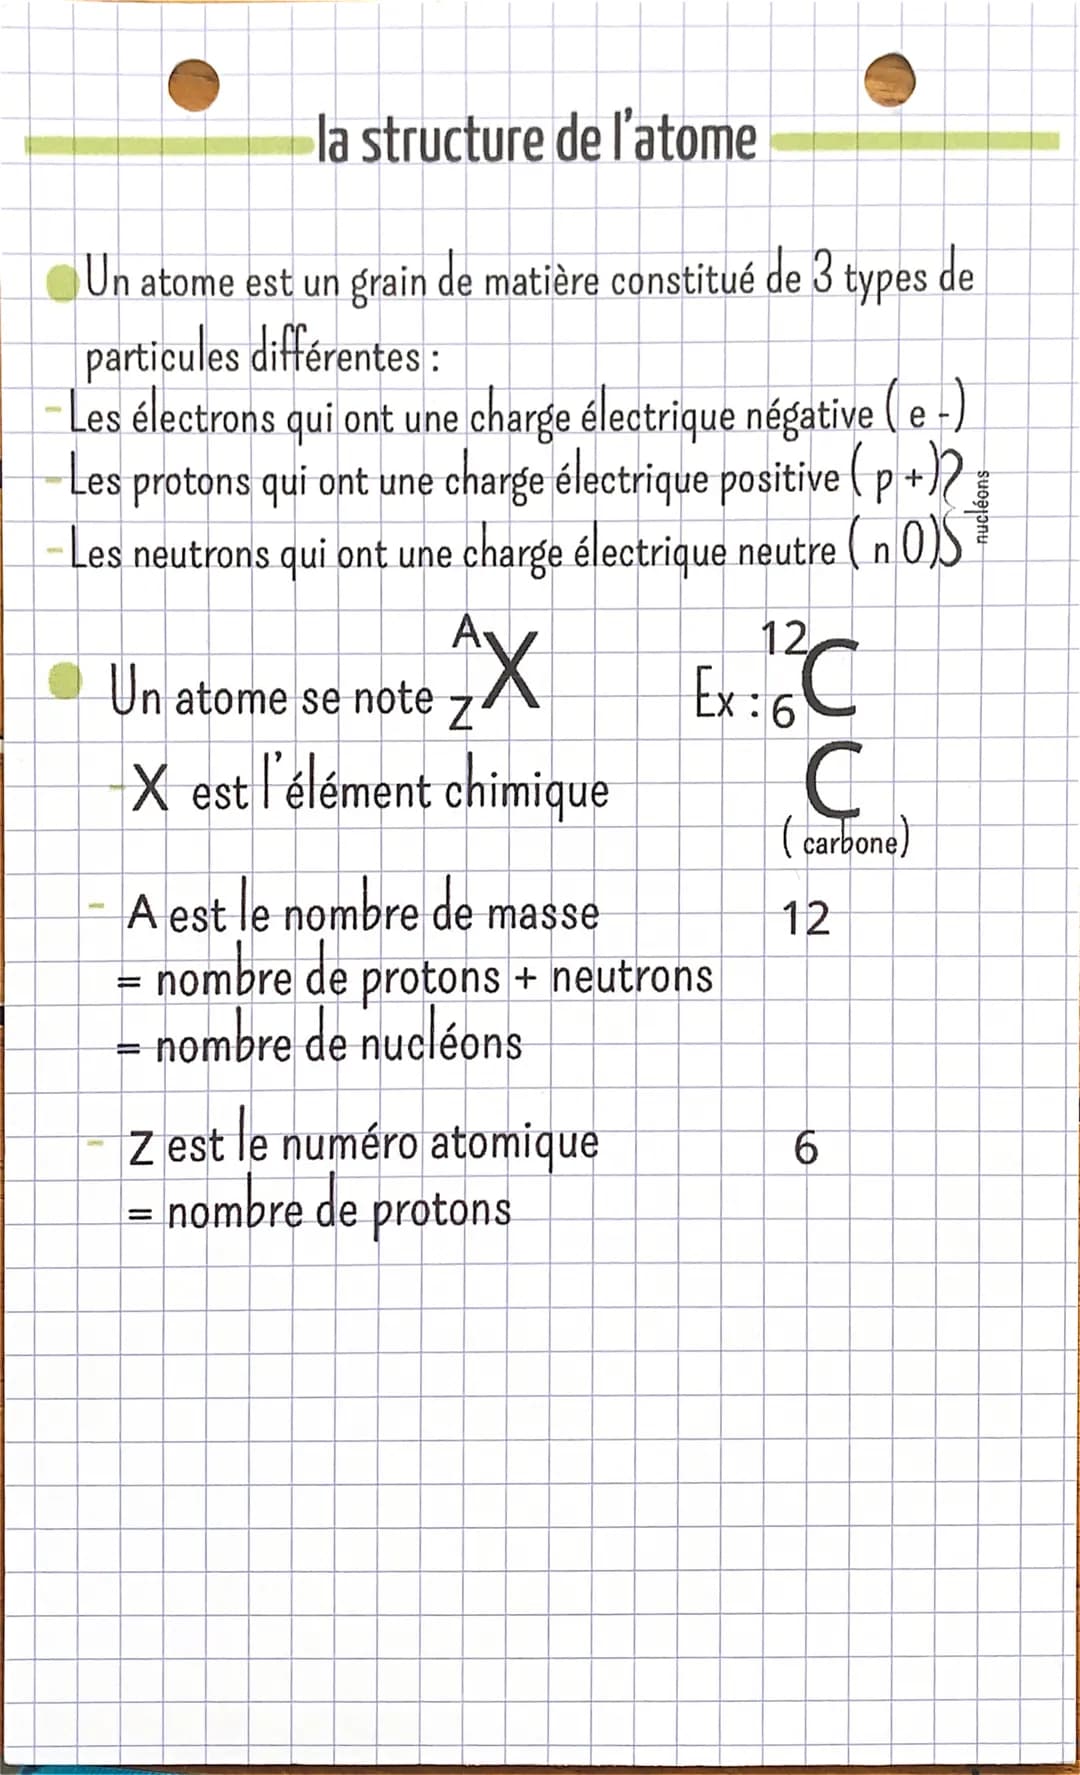 la structure de l'atome
Un atome est un grain de matière constitué de 3 types de
particules différentes :
- Les électrons qui ont une charge électrique négative ( e -)
- Les protons qui ont une charge électrique positive ( p +)
- Les neutrons qui ont une charge électrique neutre ( n 0)
nucléons
Un atome se note A Z X Ex : 12 6 C
- X est l'élément chimique C
( carbone)
- A est le nombre de masse 12
= nombre de protons + neutrons
= nombre de nucléons
- Z est le numéro atomique 6
= nombre de protons